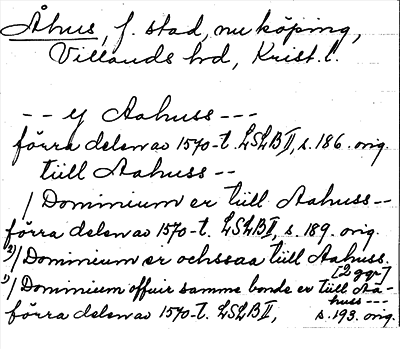 Åhus, f. stad, nu köping,
Villands hd, Krist. l.
-- y Aahuss ---
förra delen av 1570-t. LSLB II, s. 186. orig.
tiill Aahuss --
/ Dominium er tiill Aahuss --
förra delen av 1570-t. LSLB II, s. 189. orig.
2)/ Dominium er ochssaa tiill Aahuss.
[2 ggr]
1)/ Dominium offuir samme bonde er tiill Aa-
huss ---
förra delen av 1570-t. LSLB II, s. 193. orig.